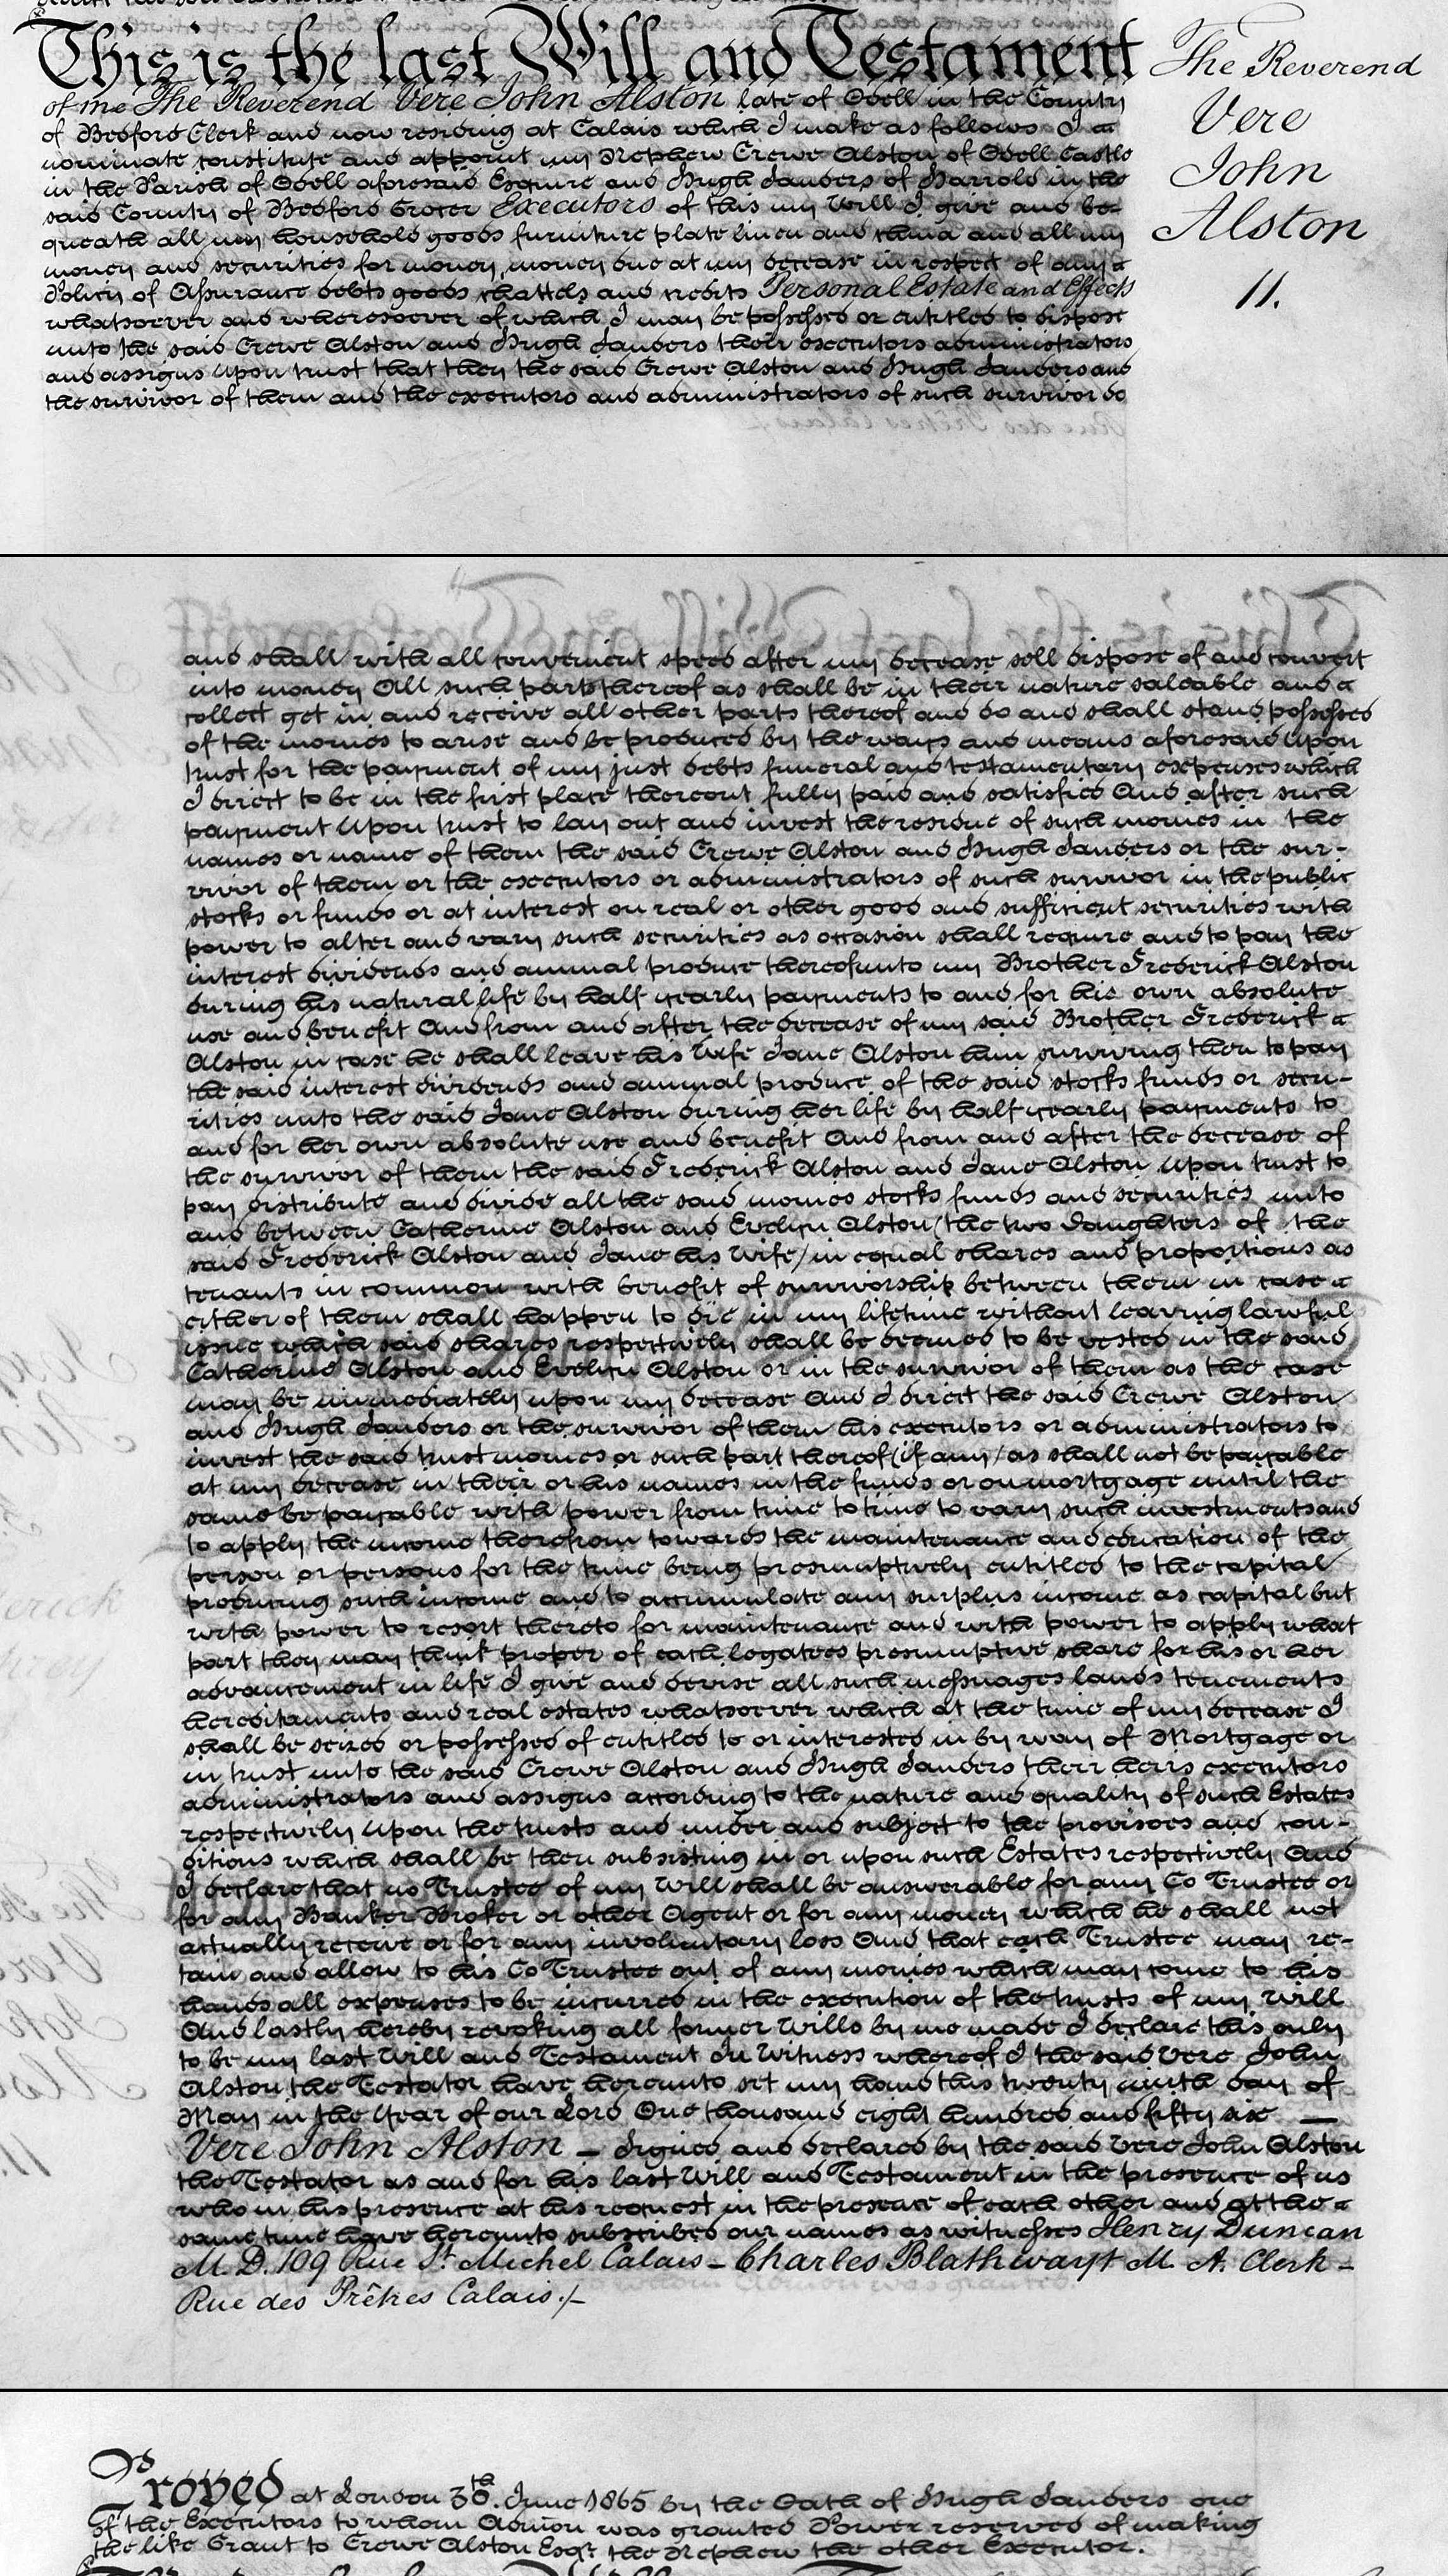 This is the last Will and Testament
of me The Reverend Vere John Alston late of Odell in the County
of Bedford Clerk and now residing at Calais which I make as follows I
nominate constitute and appoint my Nephew Crewe Alston of Odell Castle
in the Parish of Odell aforesaid Esquire and Hugh Sanders of Harrold in the
said County of Bedford Grocer Executors of this my Will I give and be-
queath all my household goods furniture plate linen and china and all my
money and securities for money, money due at my decease in respect of any
Policy of Assurance debts goods chattels and credits Personal Estate and Effects
whatsoever and wheresoever of which I may be possessed or entitled to dispose
unto the said Crewe Alston and Hugh Sanders their executors administrators
and assigns upon trust that they the said Crewe Alston and Hugh Sanders and
the survivor of them and the executors and administrators of such survivor do
The Reverend
Vere
John
Alston
11.
and shall with all convenient speed after my decease sell dispose of and convert
into money All such parts thereof as shall be in their nature saleable and
collect get in and receive all other parts thereof and do and shall stand possessed
of the monies to arise and be produced by the ways and means aforesaid Upon
trust for the payment of my just debts funeral and testamentary expenses which
I direct to be in the first place thereout fully paid and satisfied And after such
payment Upon trust to lay out and invest the residue of such monies in the
names or name of them the said Crewe Alston and Hugh Sanders or the sur-
vivor of them or the executors or administrators of such survivor in the public
stocks or funds or at interest on real or other good and sufficient securities with
power to alter and vary such securities as occasion shall require and to pay the
interest dividends and annual produce thereof unto my Brother Frederick Alston
during his natural life by half yearly payments to and for his own absolute
use and benefit And from and after the decease of my said Brother Frederick
Alston in case he shall leave his Wife Jane Alston him surviving then to pay
the said interest dividends and annual produce of the said stocks funds or secu-
rities unto the said Jane Alston during her life by half yearly payments to
and for her own absolute use and benefit And from and after the decease of
the survivor of them the said Frederick Alston and Jane Alston Upon trust to
pay distribute and divide all the said monies stocks funds and securities unto
and between Catherine Alston and Evelyn Alston (the two Daughters of the
said Frederick Alston and Jane his Wife) in equal shares and proportions as
tenants in common with benefit of survivorship between them in case
either of them shall happen to die in my lifetime without leaving lawful
issue which said shares respectively shall be deemed to be vested in the said
Catherine Alston and Evelyn Alston or in the survivor of them as the case
may be immediately upon my decease And I direct the said Crewe Alston
and Hugh Sanders or the survivor of them his executors or administrators to
invest the said trust monies or such part thereof (if any) as shall not be payable
at my decease in their or his names in the funds or on mortgage until the
same be payable with power from time to time to vary such investments and
to apply the income therefrom towards the maintenance and education of the
person or persons for the time being presumptively entitled to the capital
producing such income and to accumulate any surplus income as capital but
with power to resort thereto for maintenance and with power to apply what
part they may think proper of each legatees presumptive share for his or her
advancement in life I give and devise all such messuages lands tenements
hereditaments and real estates whatsoever which at the time of my decease I
shall be seized or possessed of entitled to or interested in by way of Mortgage or
in trust unto the said Crewe Alston and Hugh Sanders their heirs executors
administrators and assigns according to the nature and quality of such Estates
respectively Upon the trusts and under and subject to the provisoes and con-
ditions which shall be then subsisting in or upon such Estates respectively And
I declare that no Trustee of my Will shall be answerable for any Co Trustee or
for any Banker Broker or other Agent or for any money which he shall not
actually receive or for any involuntary loss And that each Trustee may re-
tain and allow to his Co Trustee out of any monies which may come to his
hands all expenses to be incurred in the execution of the trusts of my Will
And lastly hereby revoking all former Wills by me made I declare this only
to be my last Will and Testament In Witness whereof I the said Vere John
Alston the Testator have hereunto set my hand this twenty ninth day of
May in the Year of our Lord One thousand eight hundred and fifty six —
Vere John Alston — Signed and declared by the said Vere John Alston
the Testator as and for his last Will and Testament in the presence of us
who in his presence at his request in the presence of each other and at the
same time have hereunto subscribed our names as witnesses Henry Duncan
M. D. 109 Rue St. Michel Calais — Charles Blathwayt M. A. Clerk —
Rue des Prêtres Calais ./—
Proved at London 30th. June 1865 by the Oath of Hugh Sanders one
of the Executors to whom Admon was granted Power reserved of making
the like Grant to Crewe Alston Esqr. the Nephew the other Executor.